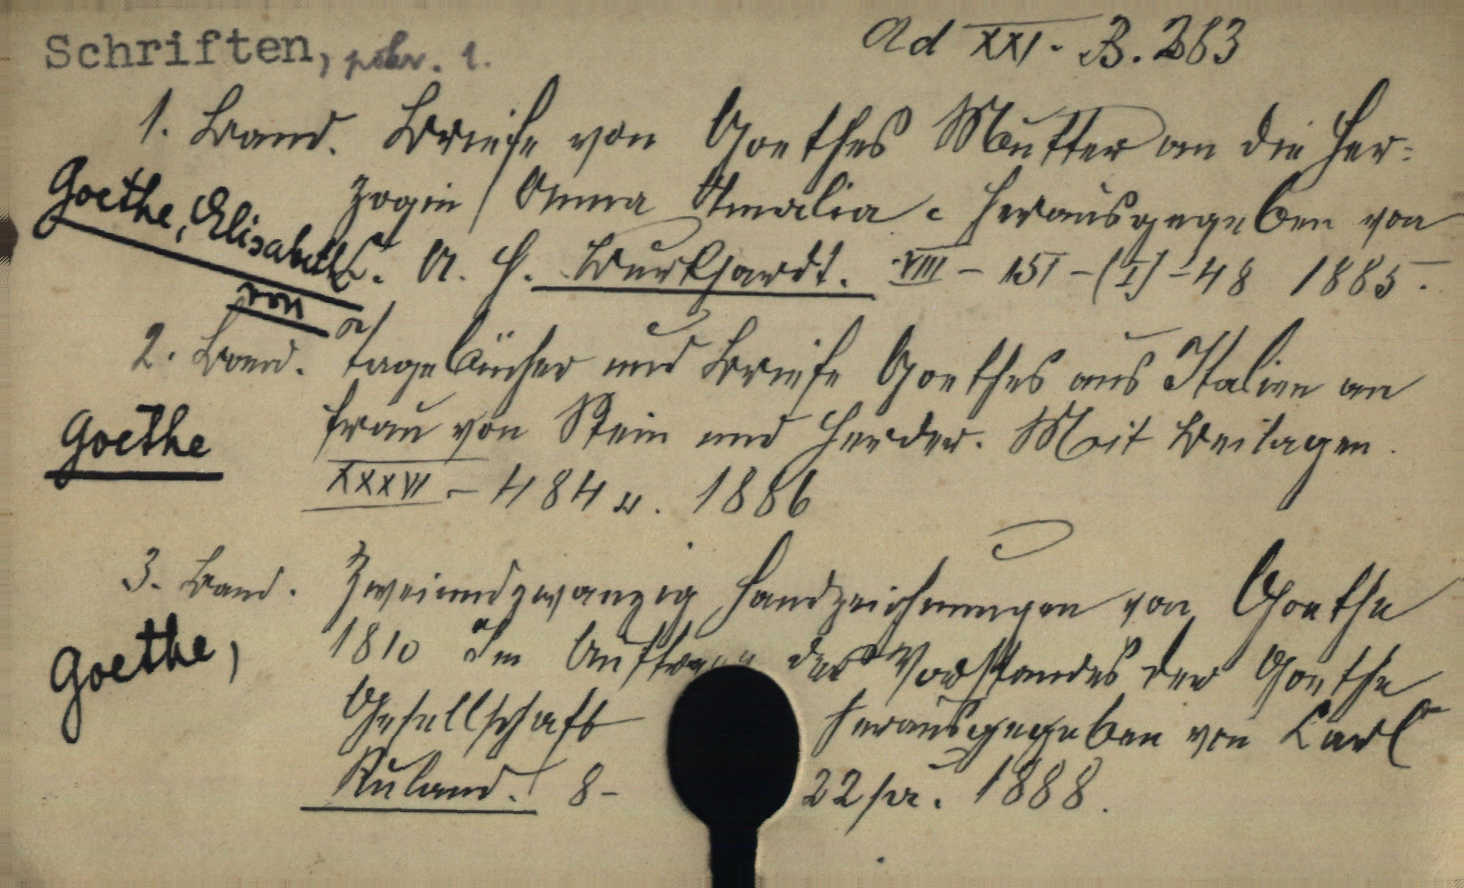 Schriften, pokr. 1.
Ad XXI. B. 283
1. Band. Briefe von Goethes Mutter an die Her-
zogin Anna Amalia. Herausgegeben von
Goethe, Elisabeth
von
C. A. H. Burkhardt. VIII – 151 – (I) – 48 1885.
2. Band. Tagebücher und Briefe Goethes aus Italien an
Goethe
Frau von Stein und Herder. Mit Beilagen.
XXXVI – 484 1886
3. Band. Zweiundzwanzig Handzeichnungen von Goethe
Goethe,
1810 Im Auftrage des Vorstandes der Goethe
Gesellschaft herausgegeben von Carl
Ruland. 8– 22 1888.